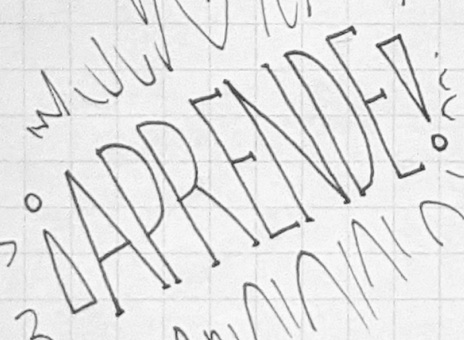 ¡APRENDE!